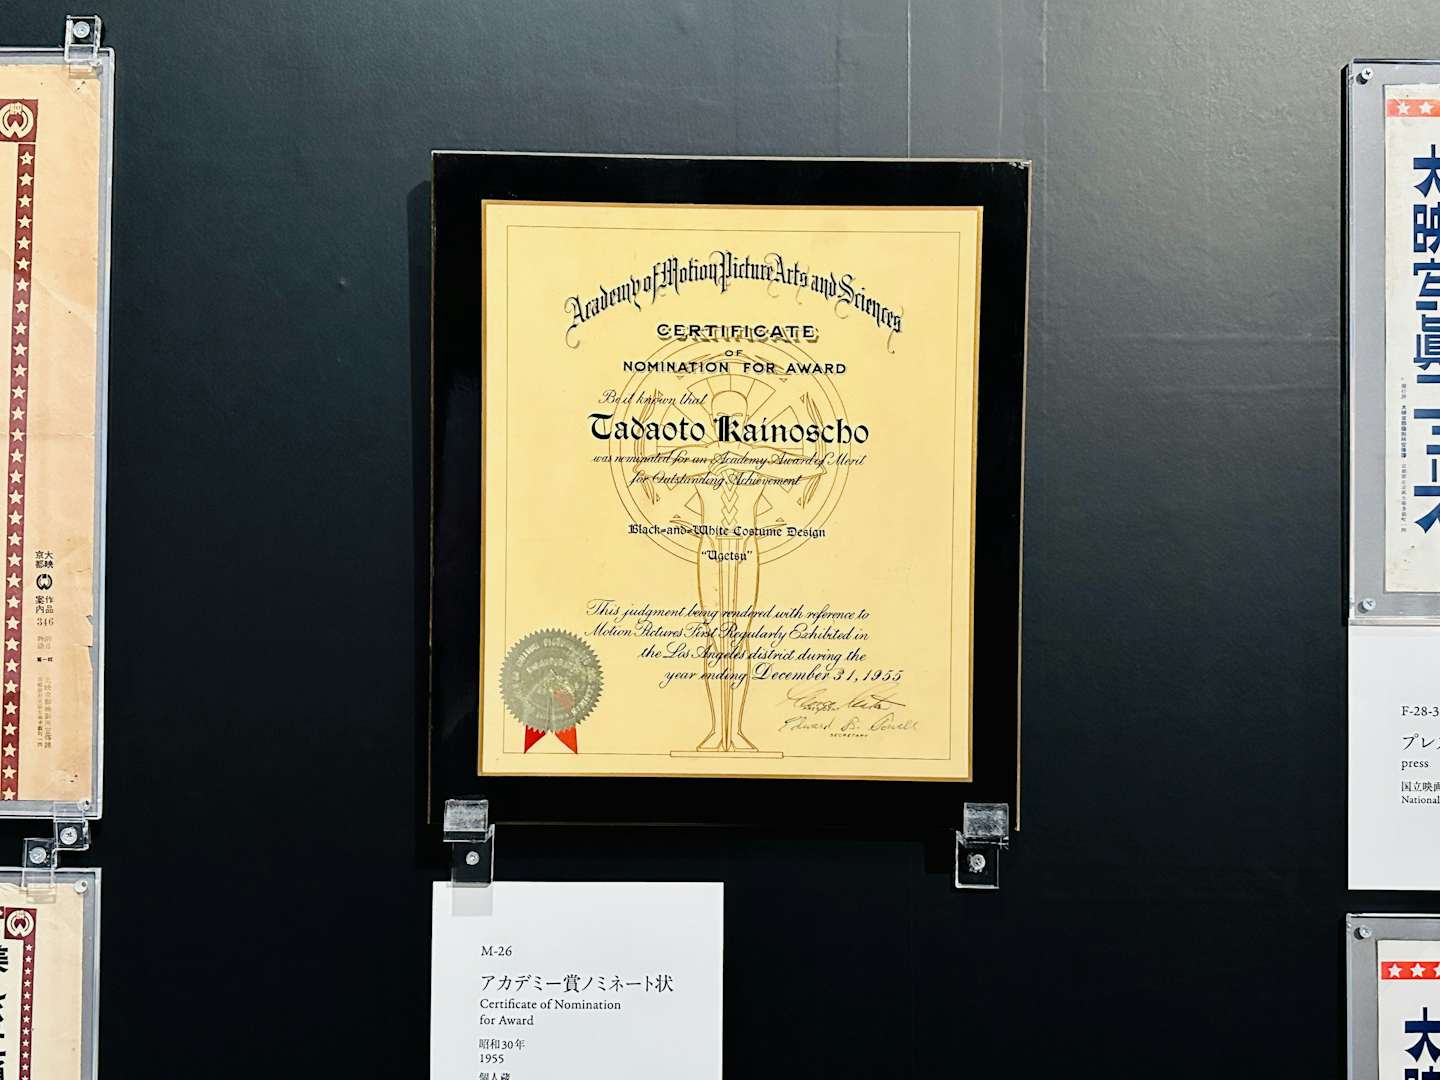 Academy of Motion Picture Arts and Sciences
CERTIFICATE
OF
NOMINATION FOR AWARD
Be it known that
Tadaoto Kainoscho
was nominated for an Academy Award of Merit
for Outstanding Achievement
Black-and-White Costume Design
"Ugetsu"
This judgment being rendered with reference to
Motion Pictures First Regularly Exhibited in
the Los Angeles district during the
year ending December 31, 1955
SECRETARY
M-26
アカデミー賞ノミネート状
Certificate of Nomination
for Award
昭和30年
1955
個人蔵
大映
京都
作品
案内
346
F-28-3
プレス
press
国立映画
National
大映